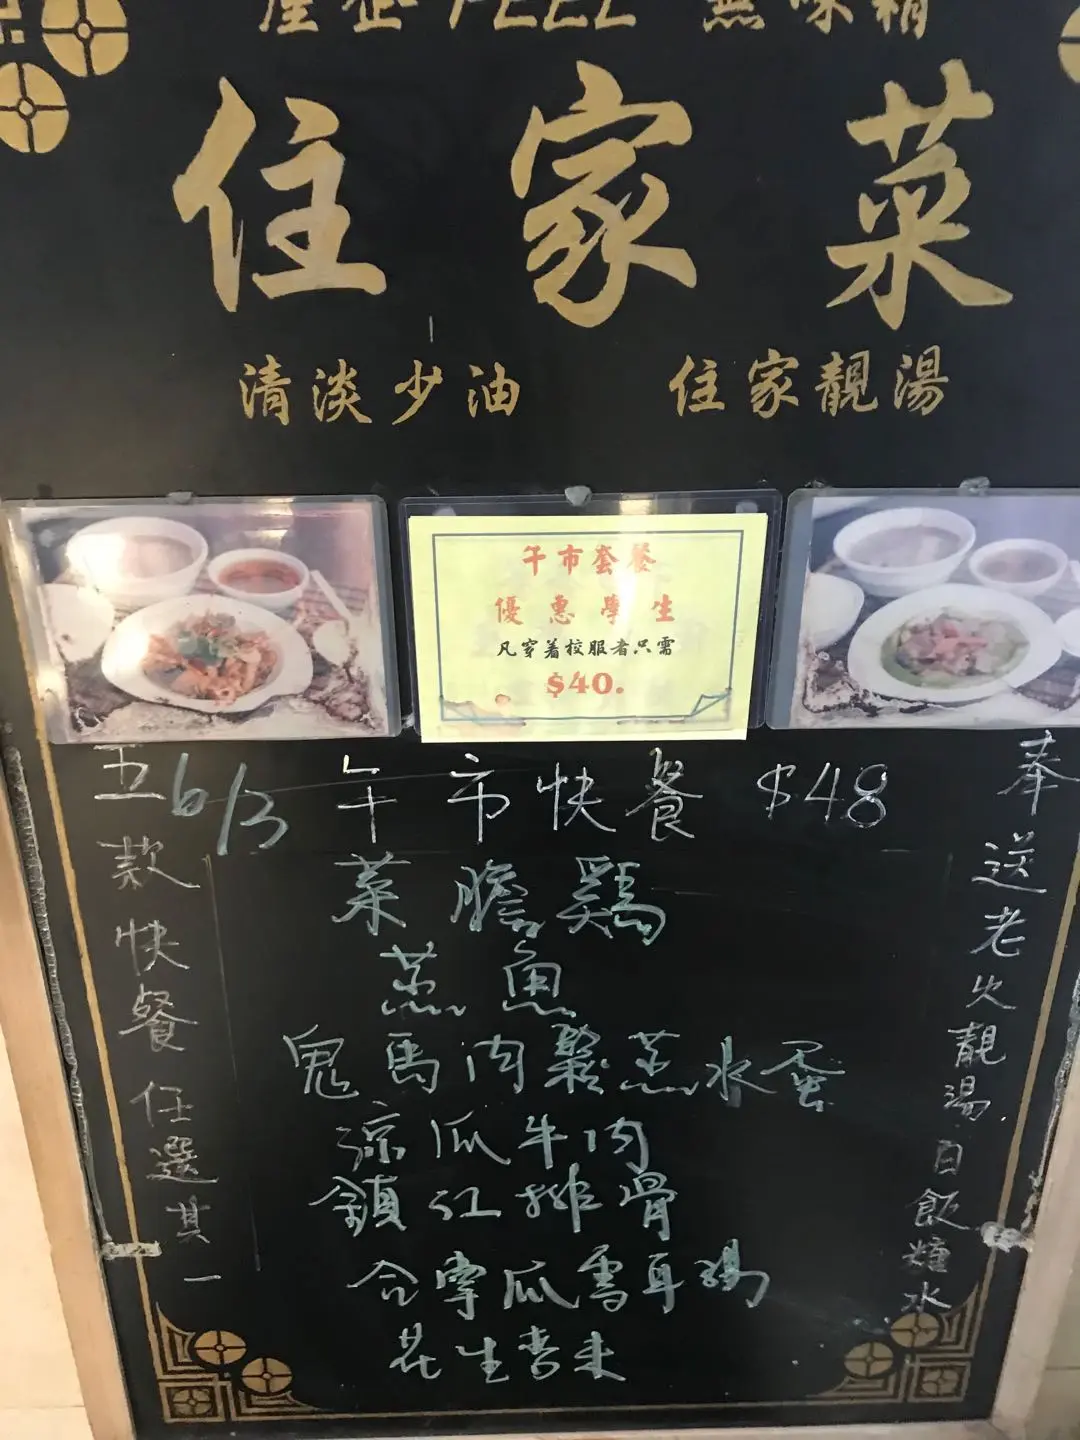 FEEL 無味精
住家菜
清淡少油 住家靚湯
午市套餐
優惠學生
凡穿着校服者只需
$40.
6/3 午市快餐 $48
菜膽鷄
蒸魚
鬼馬肉鬆蒸水蛋
涼瓜牛肉
鎮江排骨
合掌瓜雪耳湯
花生吉末
五款快餐任選其一
奉送老火靚湯.白飯糖水